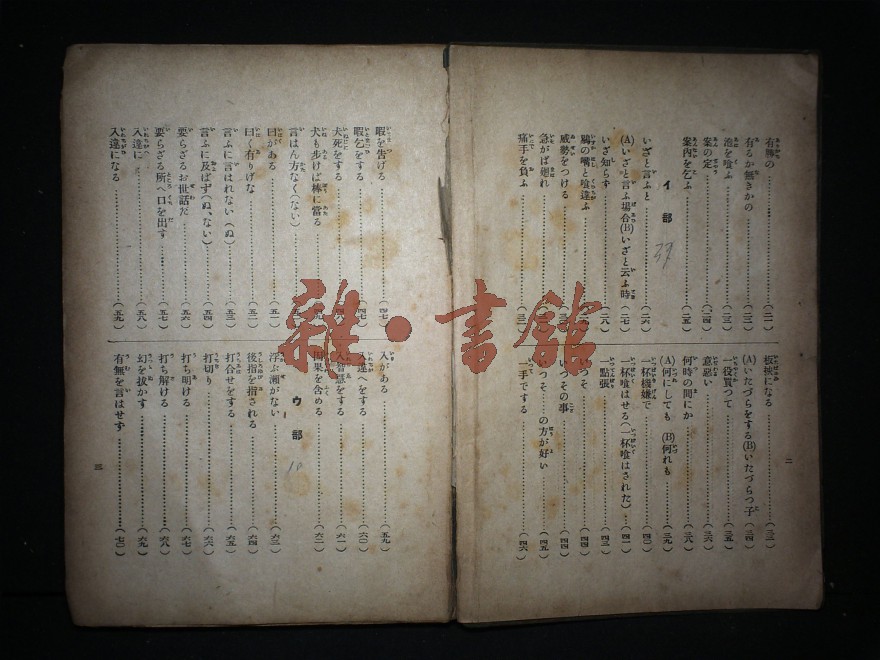 有難の……(二一)
有るか無きかの……(二三)
泡を喰ふ……(二三)
案の定……(二四)
案内を乞ふ……(二五)
イ部
37
いざと言ふと……(二六)
(A)いざと言ふ場合(B)いざと云ふ時……(二七)
いざ知らす……(二八)
鶍の嘴と喰違ふ
威勢をつける
急がば廻れ
痛手を負ふ
板挾になる……(三三)
(A)いたづらをする(B)いたづらつ子……(三四)
一役買つて……(三五)
意惡い……(三六)
何時の間にか……(三八)
(A)何にしても (B)何れも……(三九)
一杯機嫌で……(四〇)
一杯喰はせる(一杯喰はされた)……(四一)
一點張……(四三)
いつその事……(四四)
の方が好い……(四五)
一手でする……(四六)
二
暇を告げる……(四七)
暇乞をする……(四七)
犬死をする
犬も歩けば棒に當る
言はん方なく(ない)
曰がある
曰く有りげな……(五二)
言ふに言はれない(ぬ)……(五三)
言ふに及ばず(ぬ、ない)……(五四)
要らざるお世話だ……(五六)
要らざる所へ口を出す……(五七)
入違に……(五八)
入違になる……(五九)
入がある……(五九)
入違へをする……(六〇)
入智慧をする……(六一)
因果を含める……(六二)
ウ部
10
浮ぶ瀬がない……(六三)
後指を指される……(六四)
打合せをする……(六五)
打切り……(六六)
打ち明ける……(六七)
打ち解ける……(六八)
幻を拔かす……(六九)
有無を言はせず……(七〇)
三
雜·書館